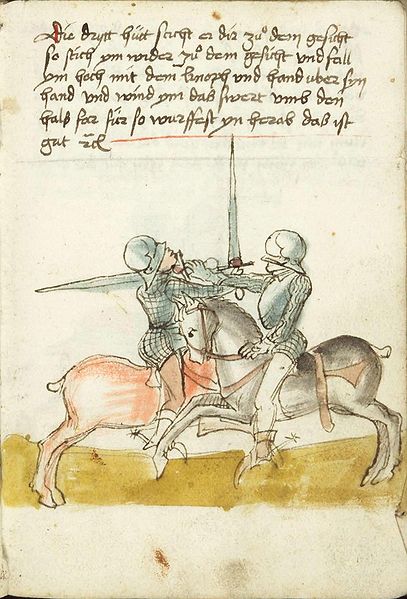 Die dritt hütt sticht er dir zuͦ dem gesicht
so stich ym wider zuͦ dem gesicht und fall
ym hoch mit dem knoph und hand uber syn
hand und wind ym das swert umb den
hals for für so wurffest yn herab das ist
gut